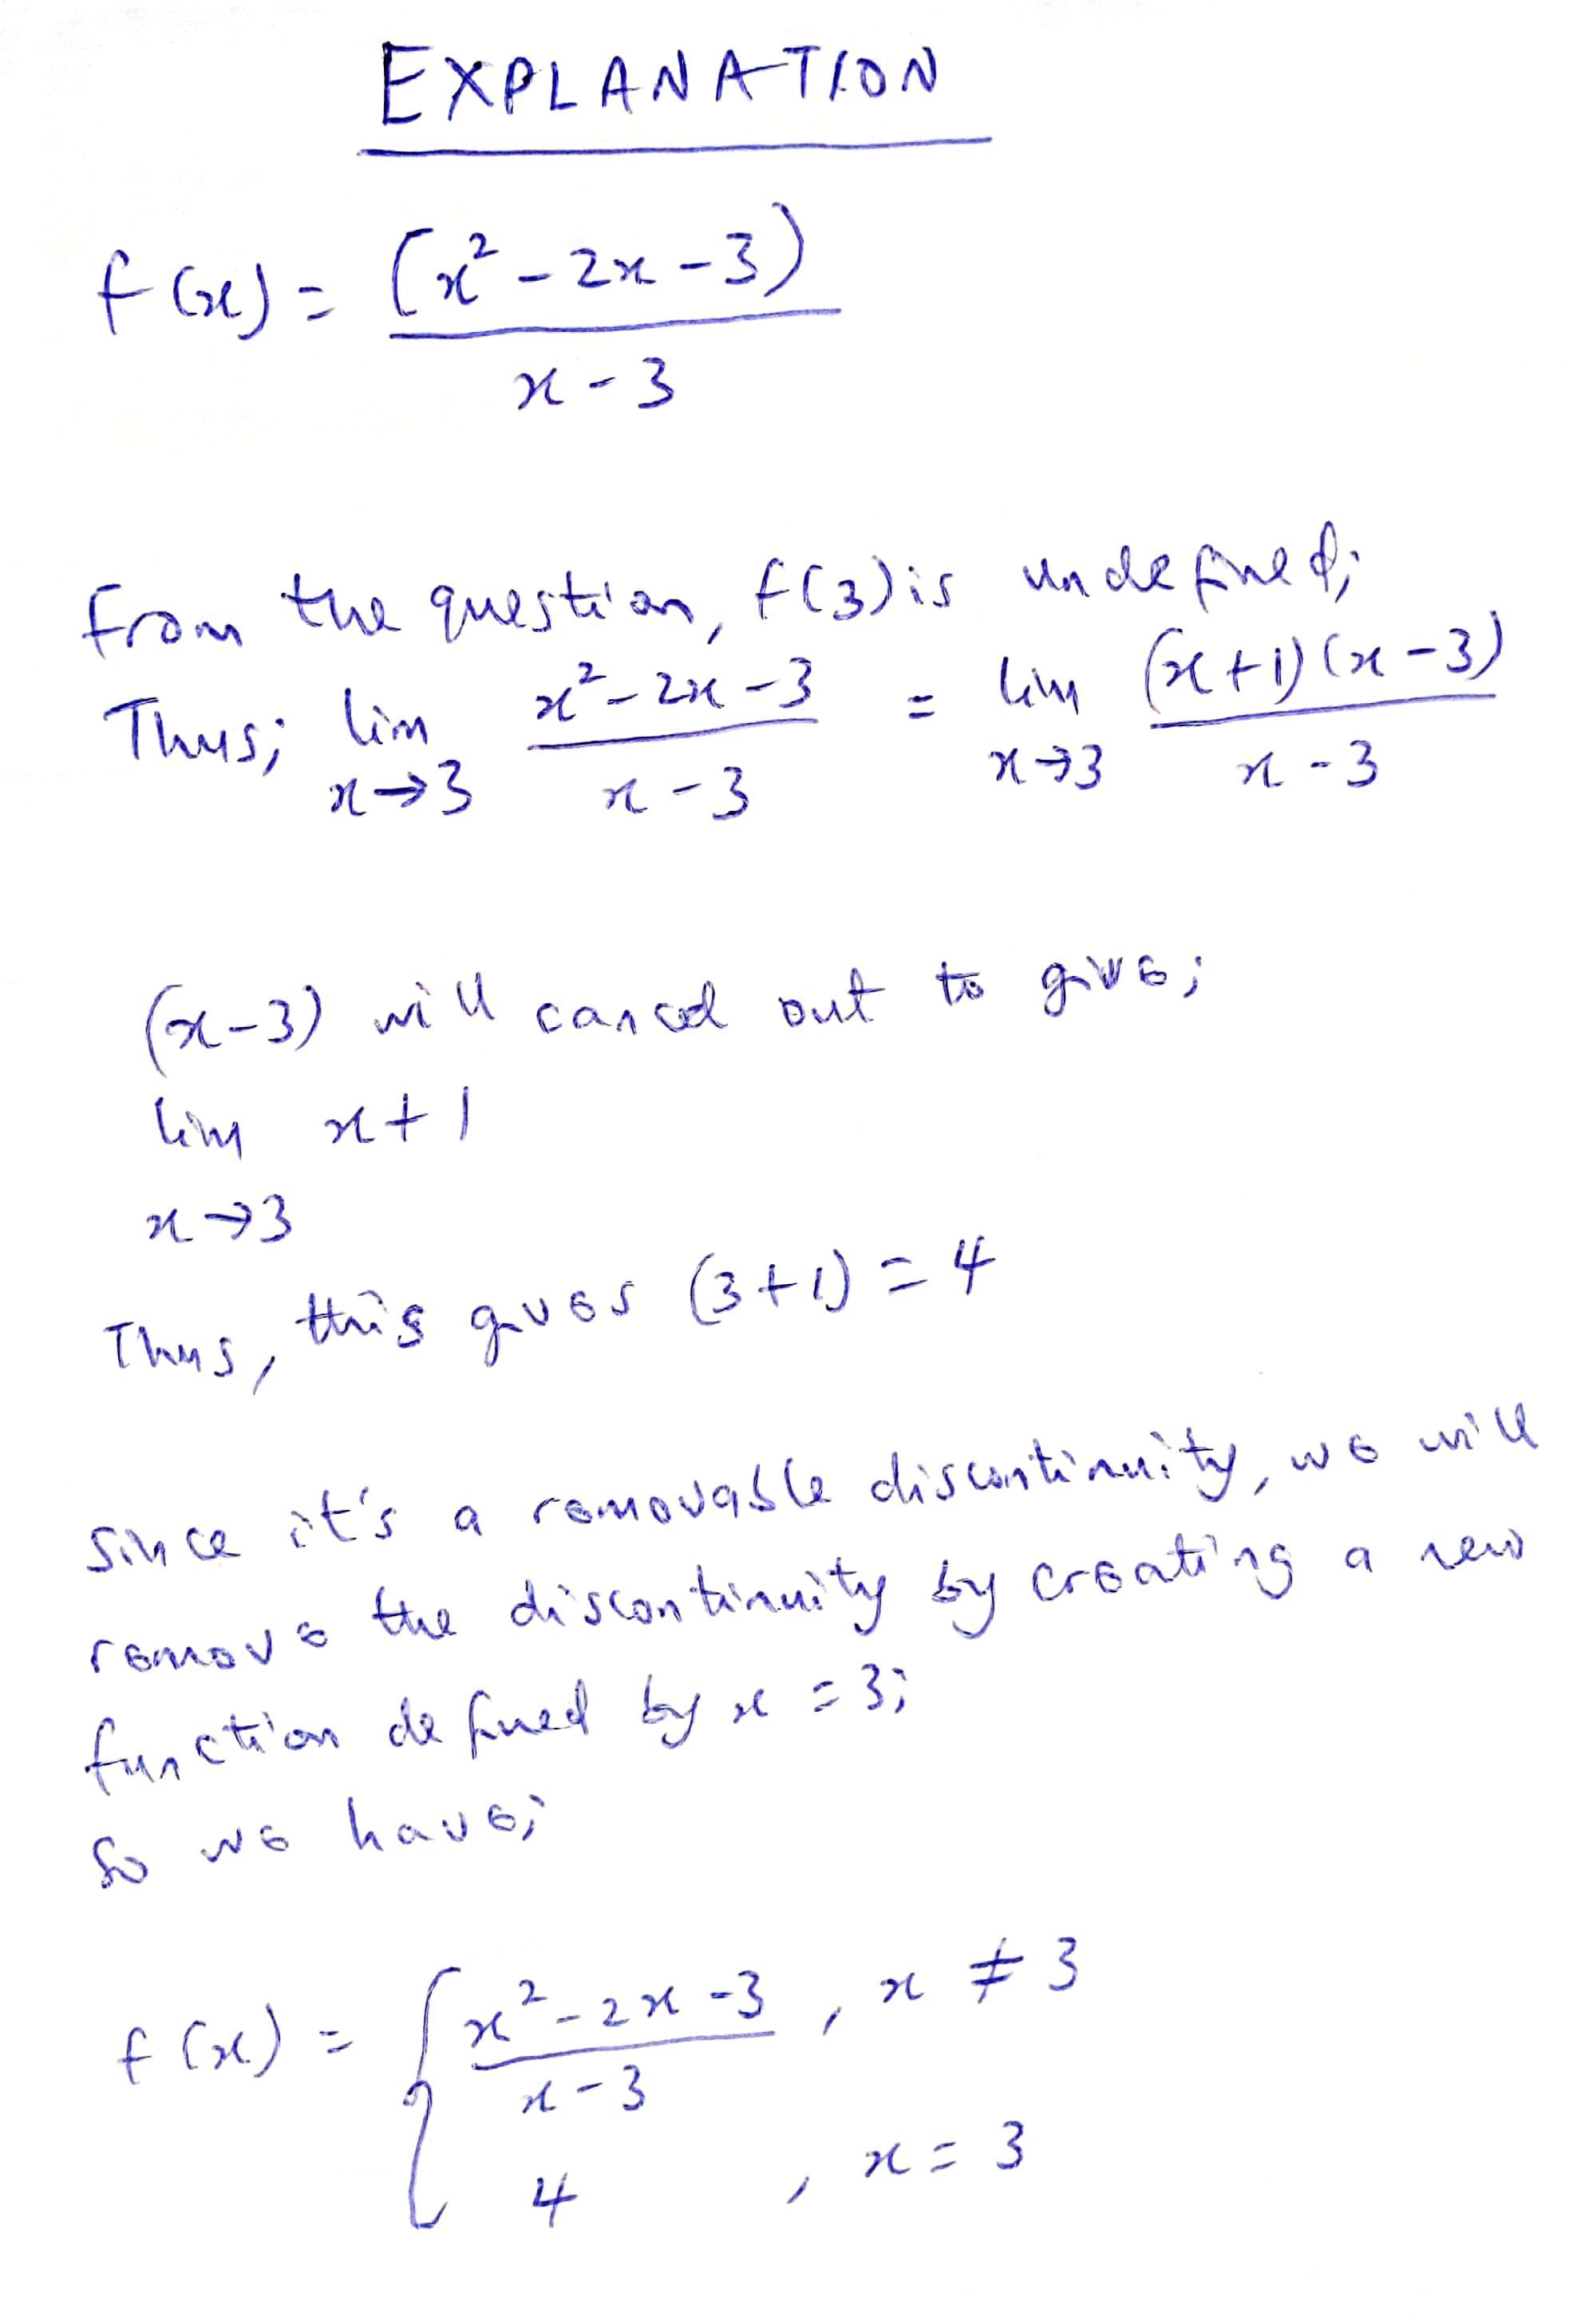 EXPLANATION
f(x) = (x² - 2x - 3)
x - 3
From the question, f(3) is undefined;
Thus; lim x² - 2x - 3 = lim (x+1)(x-3)
x→3 x - 3 x→3 x - 3
(x-3) will cancel out to give;
lim x + 1
x→3
Thus, this gives (3+1) = 4
Since it's a removable discontinuity, we will
remove the discontinuity by creating a new
function defined by x = 3;
So we have;
f(x) = { x² - 2x - 3 , x ≠ 3
x - 3
4 , x = 3